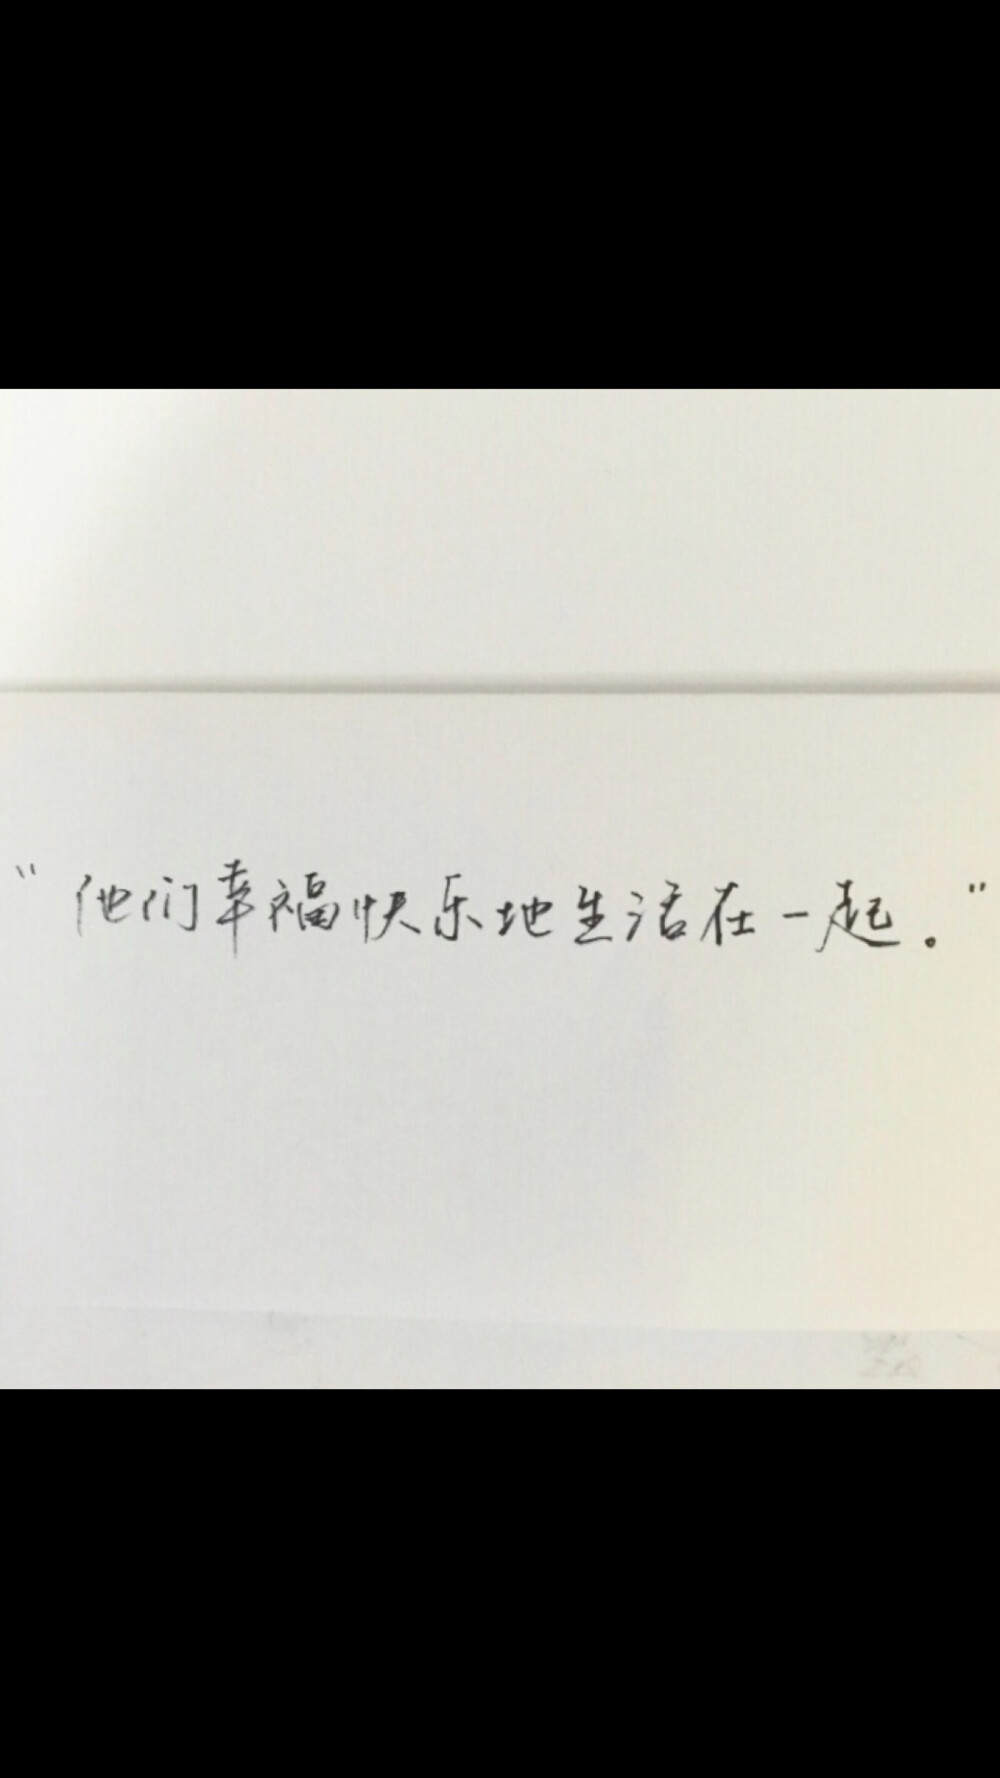 “他们幸福快乐地生活在一起。”